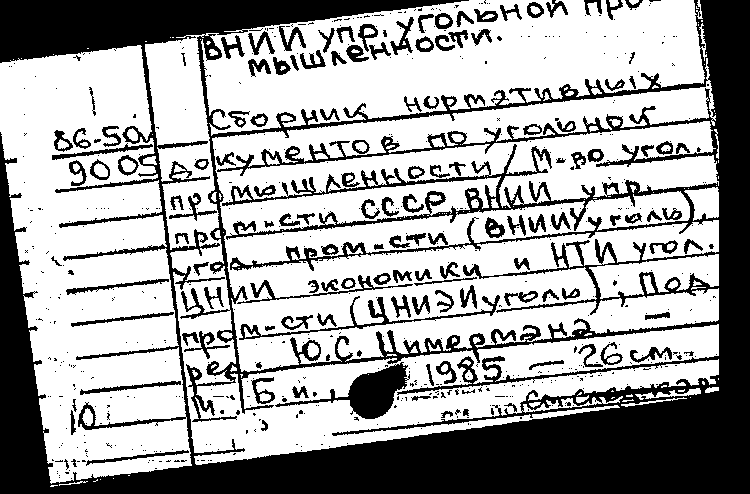 ВНИИ упр. угольной про-
мышленности.
Сборник нормативных
86-50
9005 документов по угольной
промышленности / М-во угол.
пром-сти СССР, ВНИИ упр.
угол. пром-сти (ВНИИУуголь),
ЦНИИ экономики и НТИ угол.
пром-сти (ЦНИЭИуголь); Под
ред. Ю.С. Цимермана. —
М.: Б.и., 1985. — 26 см.
10
См. след. карт